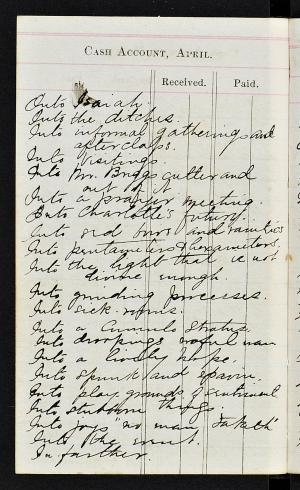 CASH ACCOUNT, APRIL.
Received. Paid.
Into Isaiah.
Into the ditches.
Into informal gatherings and
afterclaps.
Into visitings.
Into Mr. Briggs gutter and
out of it
Into a prayer meeting.
Into Charlotte's future.
Into old and vanities
Into pentameters & hexameters.
Into the light that is not
divine enough.
Into grinding processes.
Into sick-rooms.
Into a Cumulo Stratus.
Into droopings
Into a lively hope.
Into spunk and spavin.
Into play grounds of sentiment
Into stubborn things.
Into joys "no man taketh"
Into the
In farther.